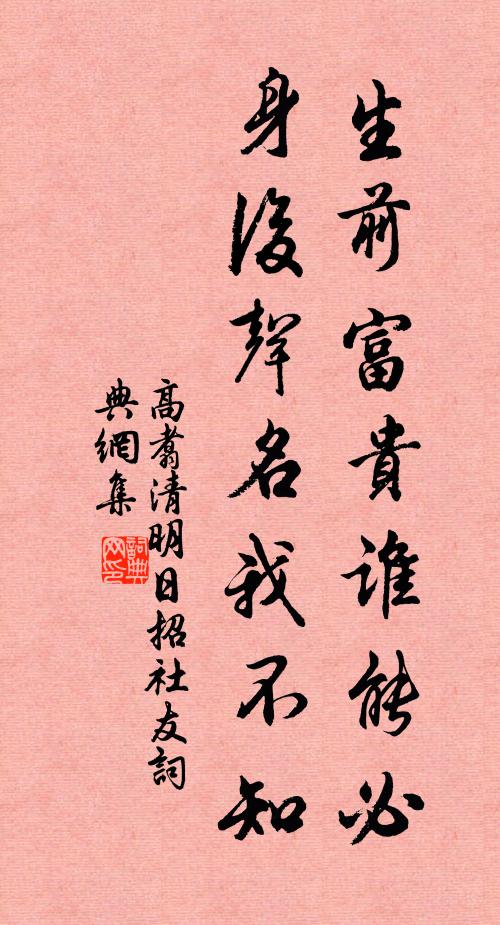 生前富貴誰能必
身後聲名我不知
高翥清明日招社友詞
典網集
詞典
网印